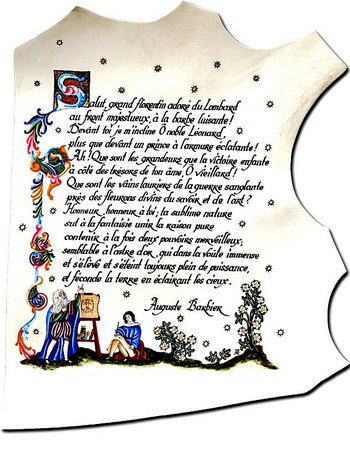 Salut, grand florentin adoré du Lombard
au front majestueux, à la barbe luisante !
Devant toi je m'incline Ô noble Léonard,
plus que devant un prince à l'armure éclatante !
Ah ! Que sont les grandeurs que la victoire enfante
à côté des trésors de ton âme, Ô vieillard !
Que sont les vains lauriers de la guerre sanglante
près des fleurons divins du savoir et de l'art ?
Honneur, honneur à toi ; ta sublime nature
sut à la fantaisie unir la raison pure
contenir à la fois deux pouvoirs merveilleux ;
semblable à l'astre d'or, qui dans la voûte immense
et s'élève et s'éteint toujours plein de puissance,
et féconde la terre en éclairant les cieux.
Auguste Barbier